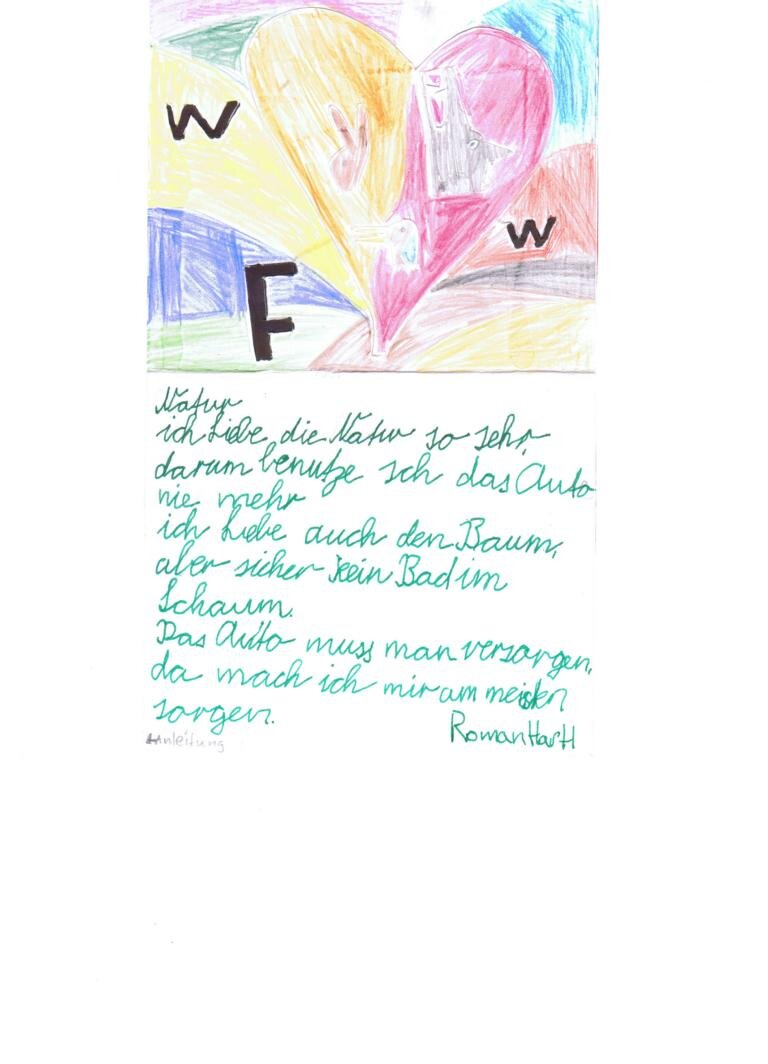 W
W
F
Natur
ich liebe die Natur so sehr,
darum benutze ich das Auto
nie mehr
ich liebe auch den Baum,
aber sicher kein Bad im
Schaum.
Das Auto muss man versorgen,
da mach ich mir am meisten
sorgen.
Roman Hartl
Anleitung